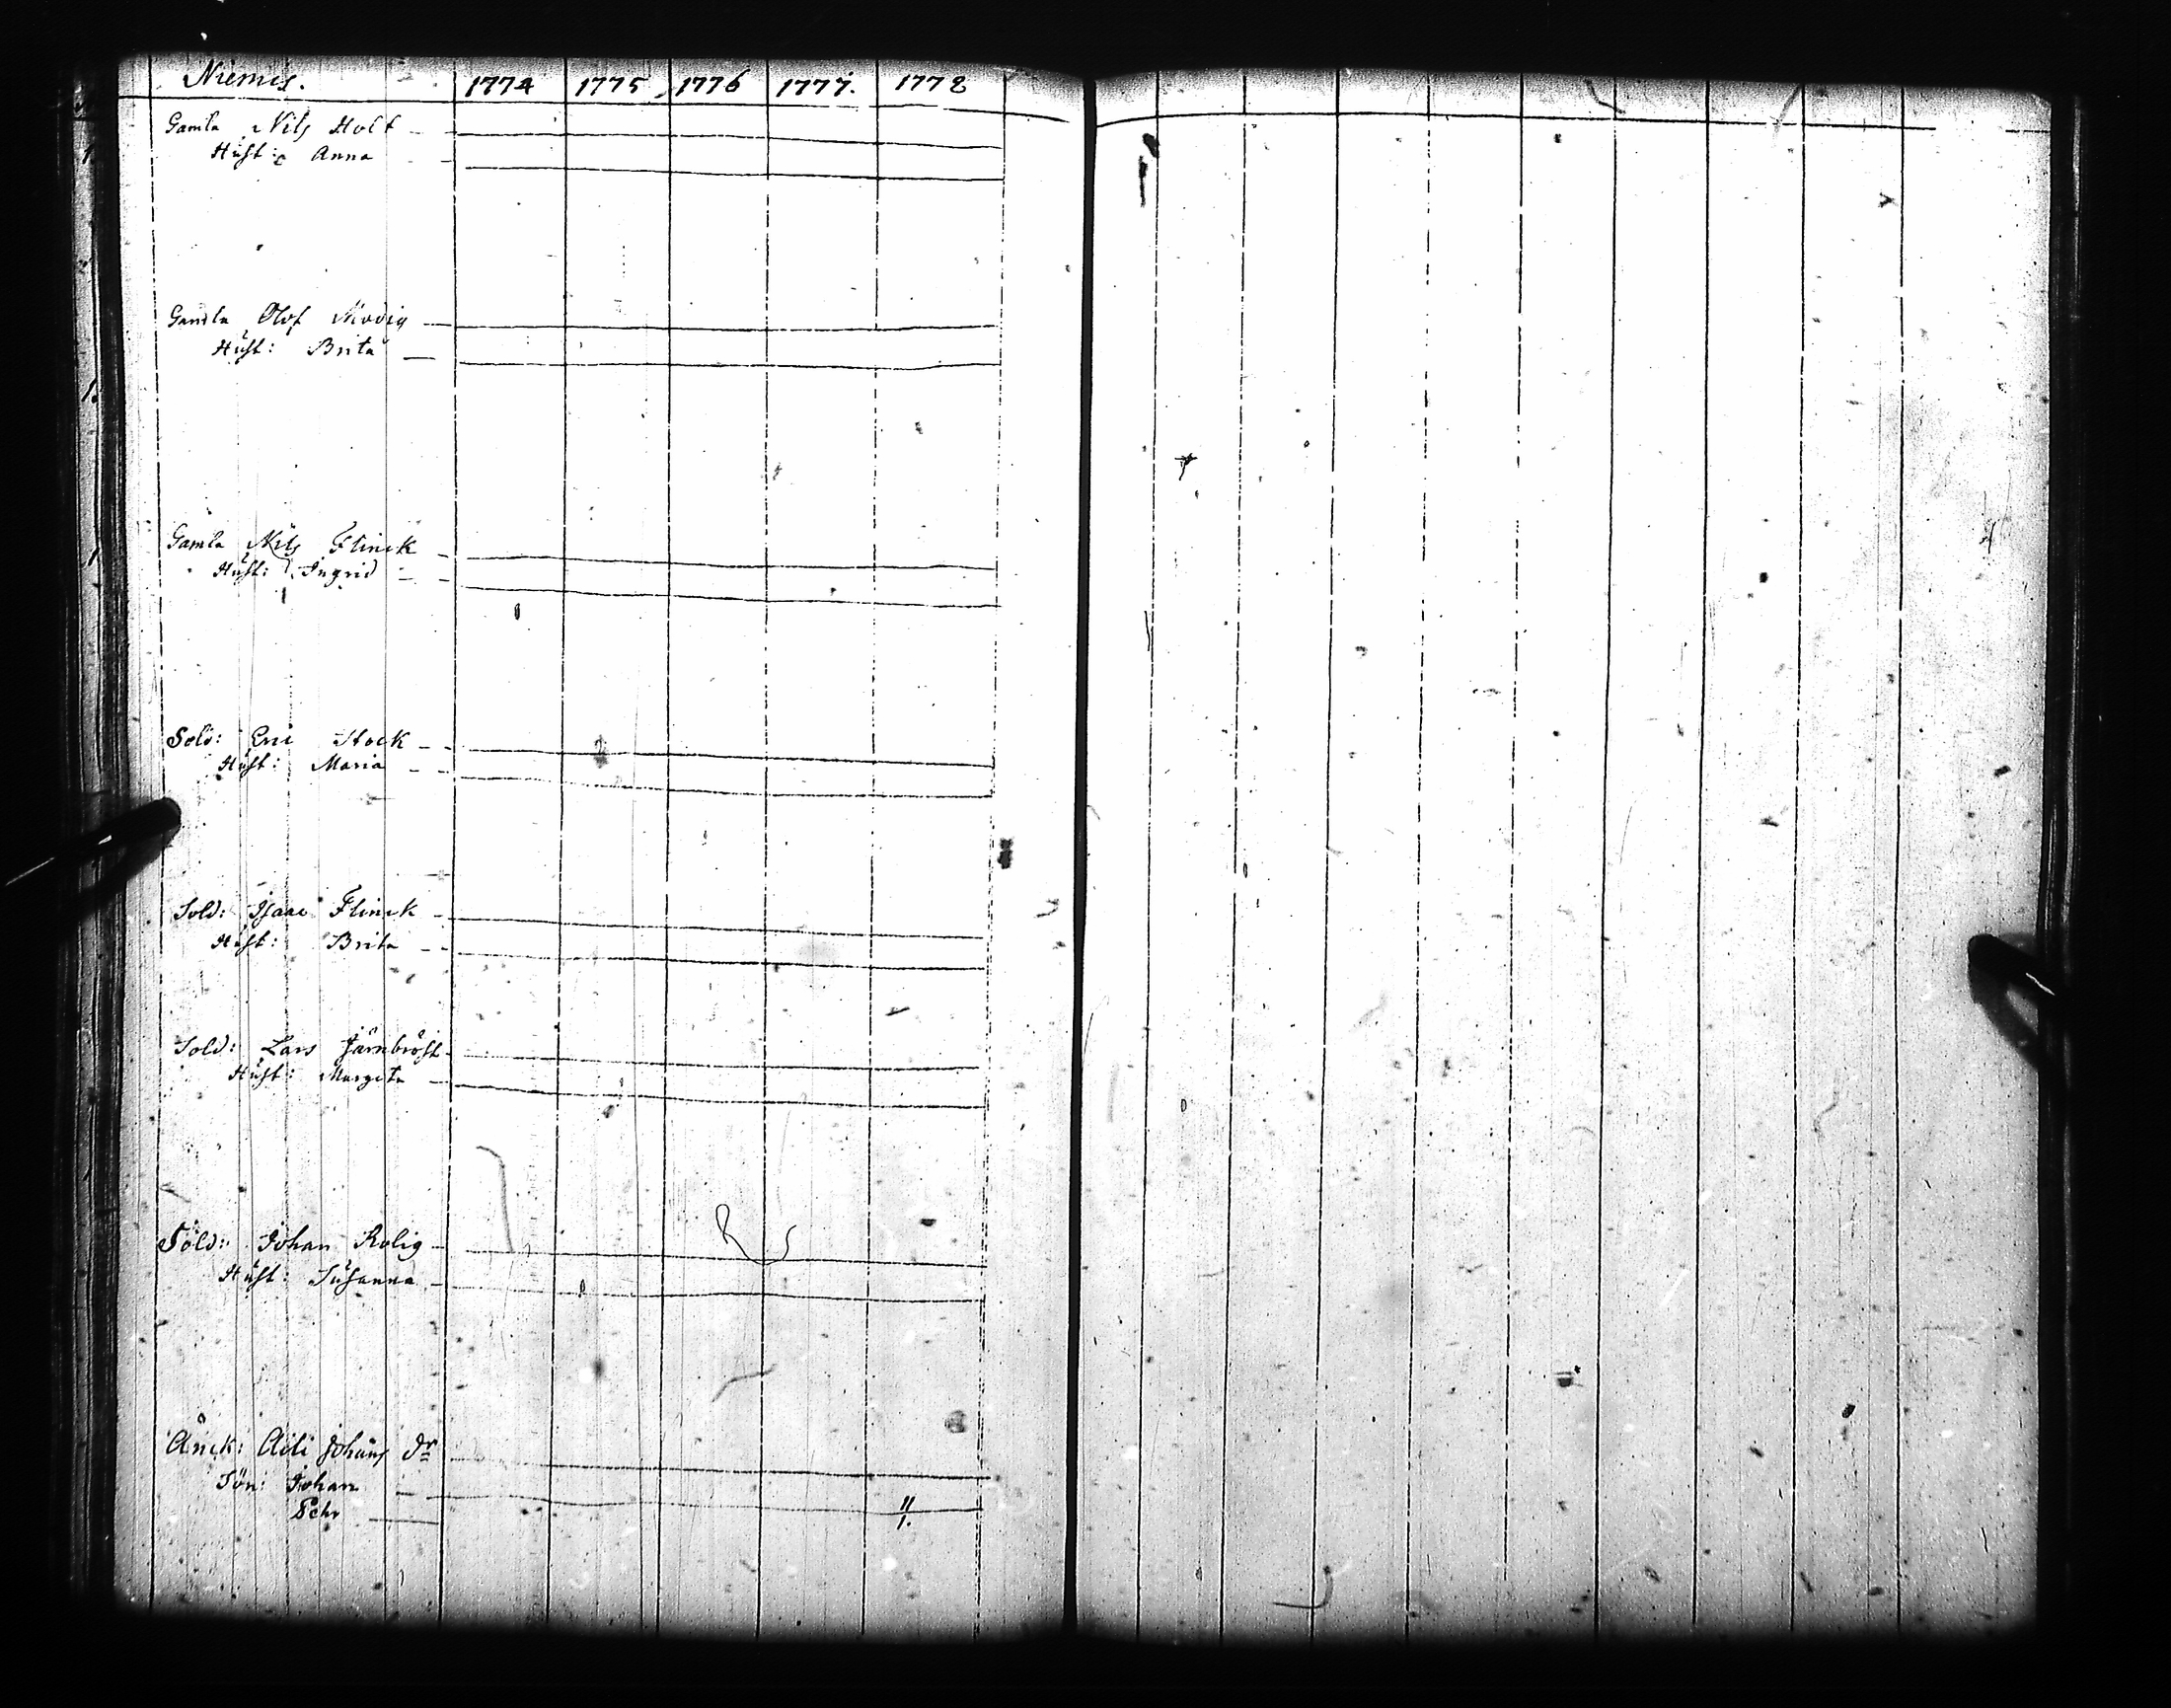 Niemis. 1774 1775 1776 1777. 1778
Gamla Nils Holt
Hust: Anna
Gamla Olof Modig
Hust: Brita
Gamla Nils Flinck
Hust: Ingrid
Sold: Eric Stock
Hust: Maria
Sold: Isaac Flinck
Hust: Brita
Sold: Lars Järnbröst
Hust: Margeta
Sold: Johan Rolig
Hust: Susanna
Änck: Aili Johans dr
Son: Johan
Pehr